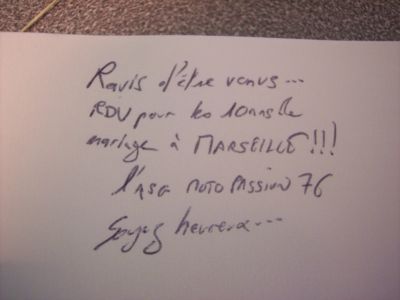 Ravis d'être venus...
RDV pour les 10 ans de
mariage à MARSEILLE !!!
l'ASG MOTO PASSION 76
Soyez heureux...